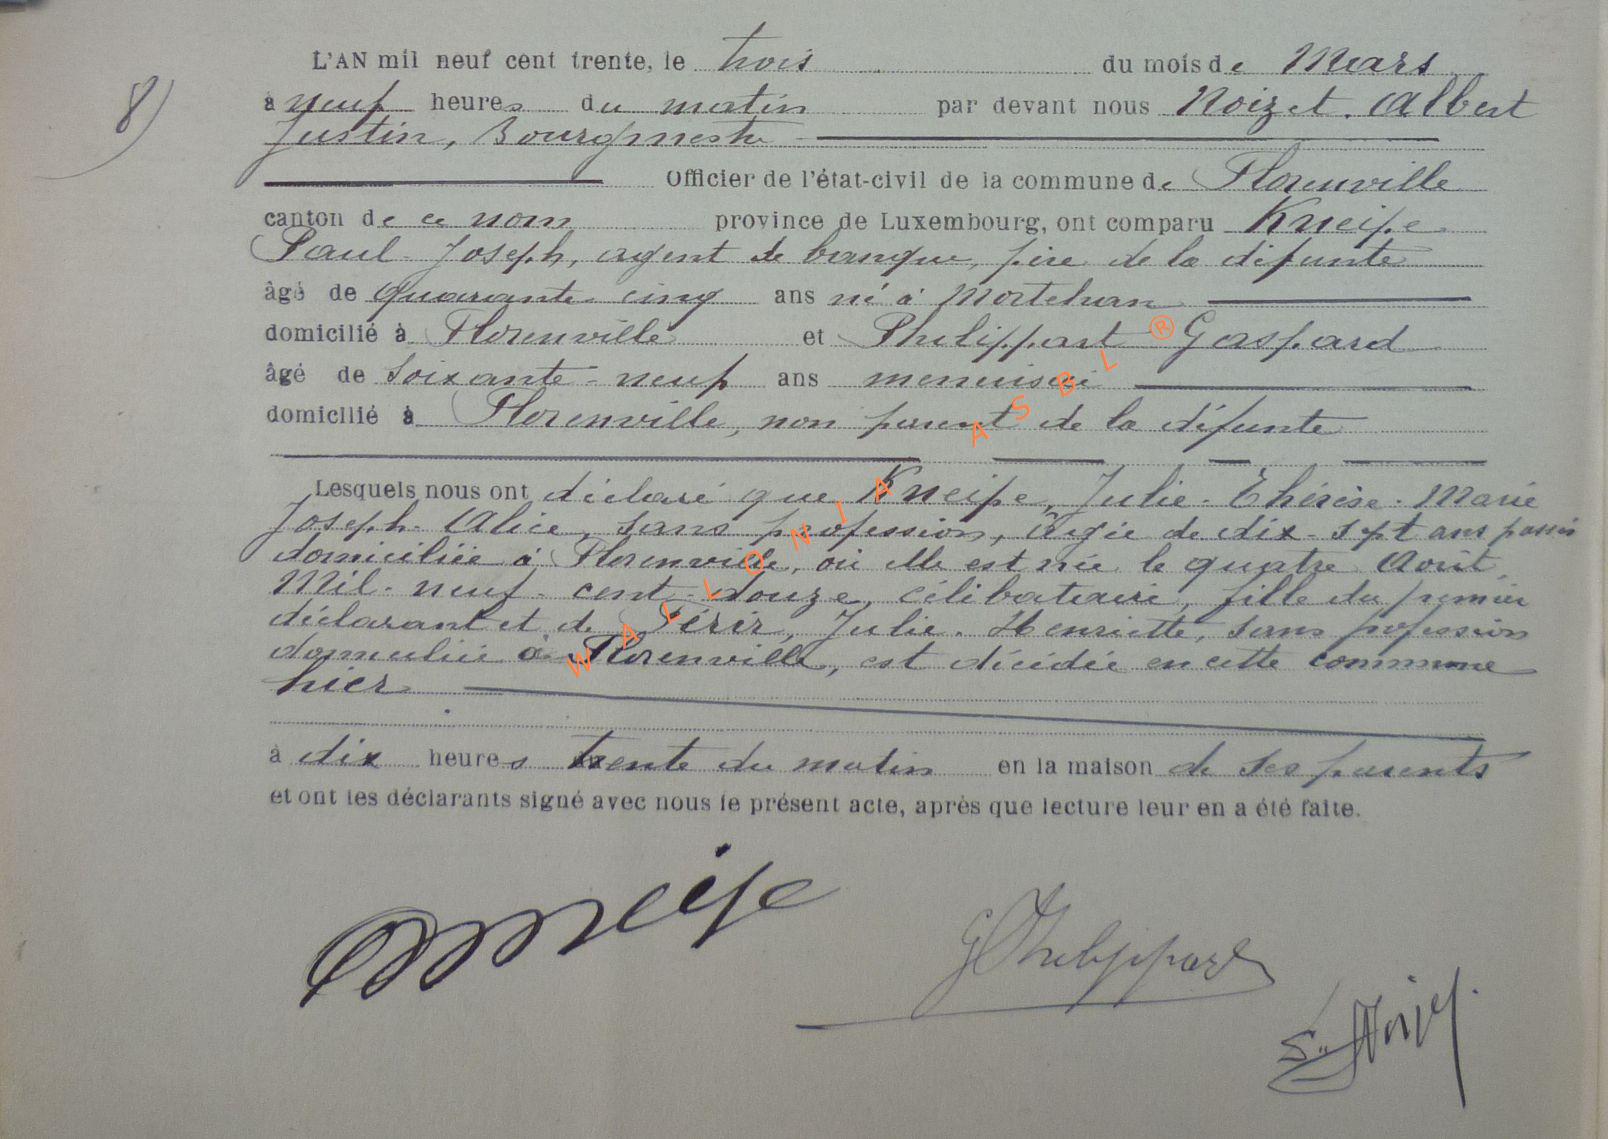 L'AN mil neuf cent trente, le trois du mois de Mars
8)
à neuf heures du matin par devant nous Noizet. Albert
Justin, Bourgmestre
Officier de l'état-civil de la commune de Florenville
canton de ce nom province de Luxembourg, ont comparu Kneipe
Paul-Joseph, agent de banque, père de la défunte
âgé de quarante cinq ans né à Mortehan
domicilié à Florenville et Philippart Gaspard
âgé de soixante-neuf ans menuisier
domicilié à Florenville, non parent de la défunte
Lesquels nous ont déclaré que Kneipe, Julie-Thérèse-Marie
Joseph-Alice, sans profession, âgée de dix-sept ans passés
domiciliée à Florenville, où elle est née le quatre Août
Mil-neuf-cent-douze, célibataire, fille du premier
déclarant et de Férir, Julie-Henriette, sans profession
domiciliée à Florenville, est décédée en cette commune
hier
à dix heures trente du matin en la maison de ses parents
et ont les déclarants signé avec nous le présent acte, après que lecture leur en a été faite.
Kneipe
G Philippart
Noizet
WALLONIA ASBL ®